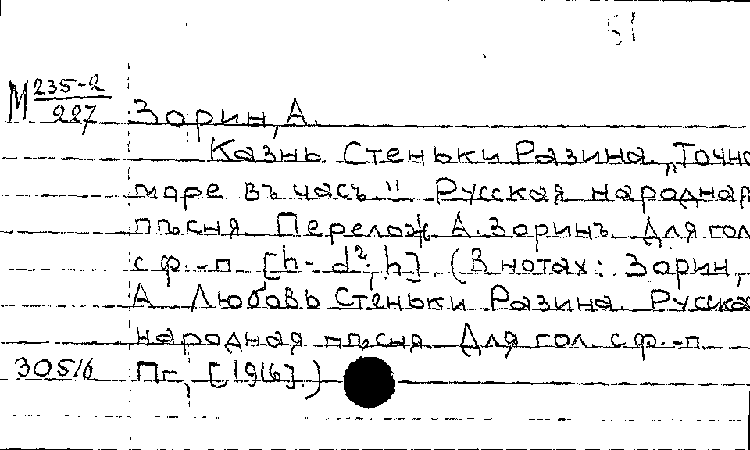 51
М 235-2/227 Зорин, А.
Казнь Стеньки Разина „Точно
море въ часъ" Русская народная
пѣсня Перелож А. Зоринъ. Для гол
с ф.-п. [h-d², h]. (В нотах: Зорин,
А Любовь Стеньки Разина. Русска
народная пѣсня Для гол. с ф.-п.
30516 Пг, [1916].)